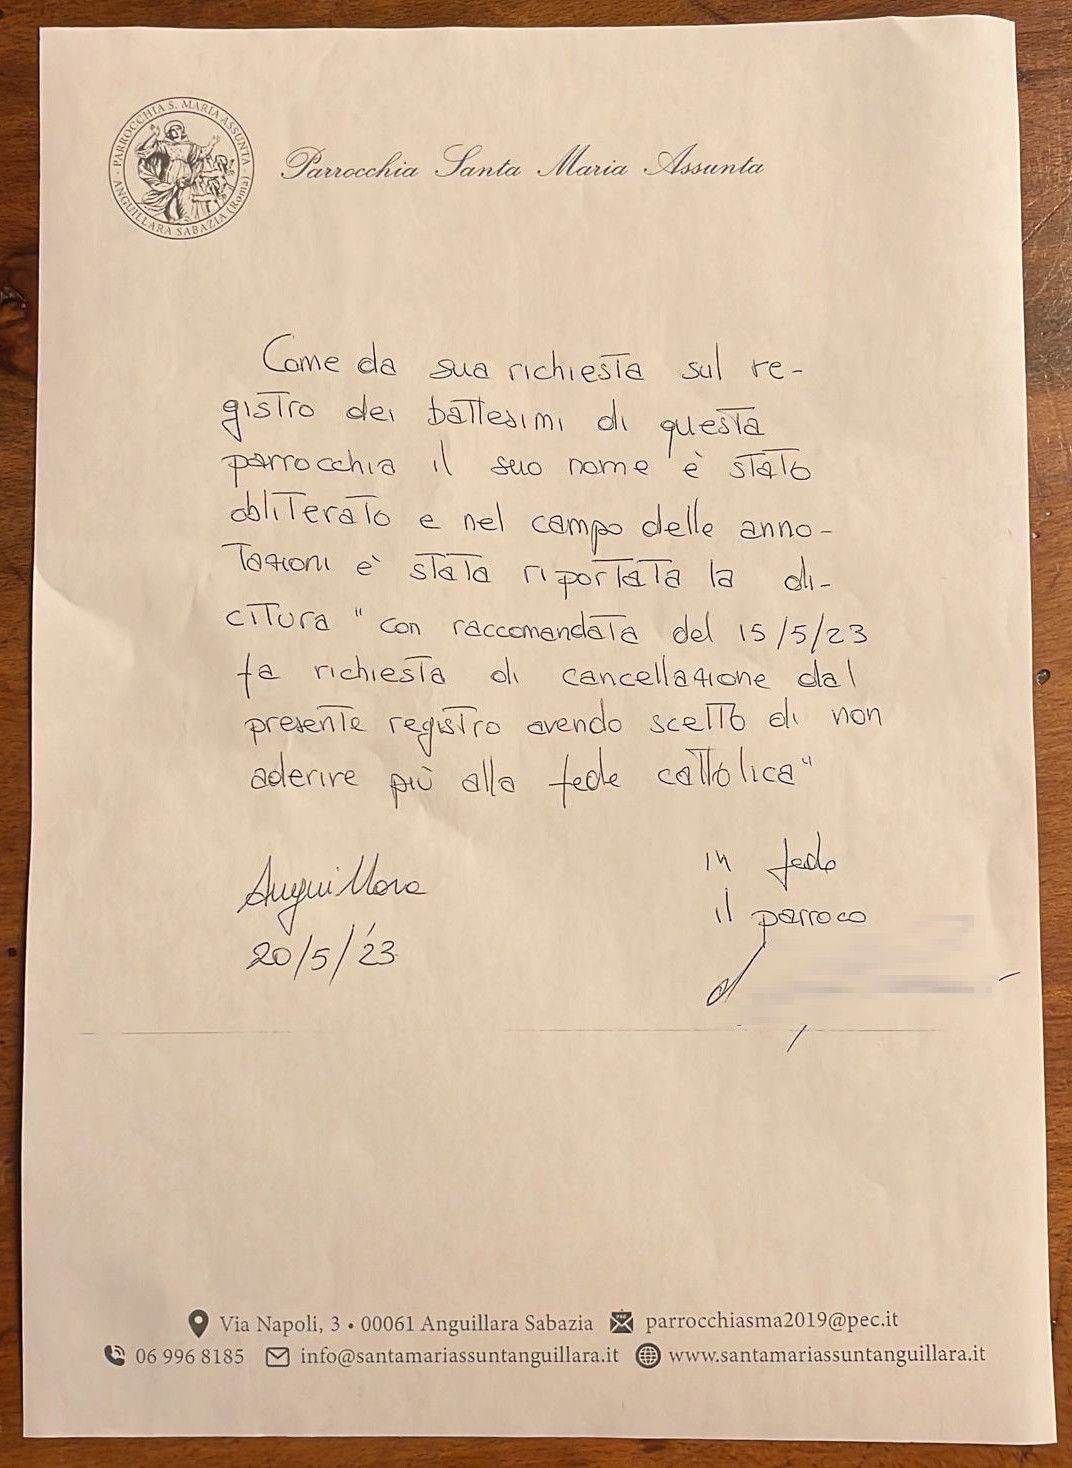 PARROCCHIA S. MARIA ASSUNTA
ANGUILLARA SABAZIA (Roma)
Parrocchia Santa Maria Assunta
Come da sua richiesta sul re-
gistro dei battesimi di questa
parrocchia il suo nome è stato
obliterato e nel campo delle anno-
tazioni è stata riportata la di-
citura "con raccomandata del 15/5/23
fa richiesta di cancellazione dal
presente registro avendo scelto di non
aderire più alla fede cattolica"
Anguillara
20/5/'23
in fede
il parroco
d
Via Napoli, 3 • 00061 Anguillara Sabazia parrocchiasma2019@pec.it
06 996 8185 info@santamariassuntanguillara.it www.santamariassuntanguillara.it